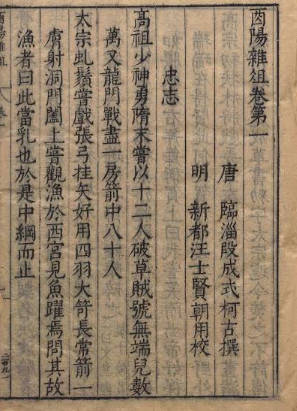 酉陽雜俎卷第一
唐 臨淄段成式柯古撰
明 新都汪士賢朝用校
忠志
高祖少神勇隋末嘗以十二人破草賊號無端兒數
萬又龍門戰盡一房箭中八十人
太宗虬鬚嘗戲張弓挂矢好用四羽大笴長常箭一
膚射洞門闔上嘗觀漁於西宮見魚躍焉問其故
漁者曰此當乳也於是中網而止